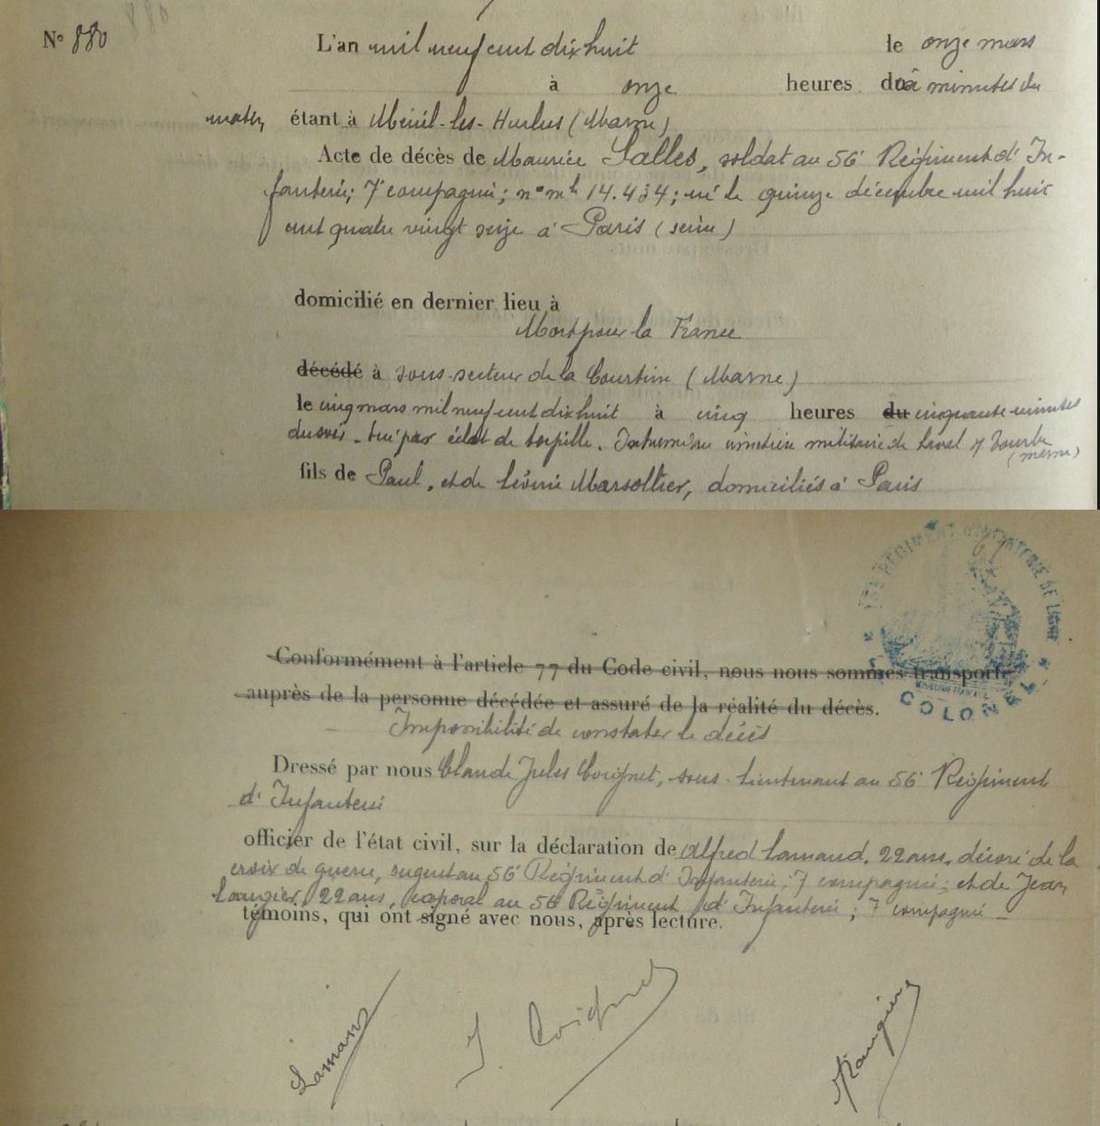 N° 880 L'an mil neuf cent dix huit le onze mars
à onze heures du minutes du
matin, étant à Mesnil-les-Hurlus (Marne)
Acte de décès de Maurice Salles, soldat au 56e Régiment d'In-
fanterie; 7e compagnie; n° mle 14.434; né le quinze décembre mil huit
cent quatre vingt seize à Paris (seine)
domicilié en dernier lieu à
Mort pour la France
décédé à sous-secteur de la Courtine (Marne)
le cinq mars mil neuf cent dix huit à cinq heures du cinquante minutes
du soir. tué par éclat de torpille. Inhumé au cimetière militaire de Laval s/ Tourbe
(marne)
fils de Paul, et de Léonie Marsollier, domiciliés à Paris
RÉGIMENT D'INFANTERIE DE LIGNE
COLONEL
Conformément à l'article 77 du Code civil, nous nous sommes transporté
auprès de la personne décédée et assuré de la réalité du décès.
Impossibilité de constater le décès
Dressé par nous Claude Jules Coignet, sous-lieutenant au 56e Régiment
d'Infanterie
officier de l'état civil, sur la déclaration de Alfred Lamand, 22 ans, décoré de la
croix de guerre, sergent au 56e Régiment d'Infanterie; 7e compagnie; et de Jean
Rougier, 22 ans, caporal au 56e Régiment d'Infanterie; 7e compagnie
témoins, qui ont signé avec nous, après lecture.
J. Coignet